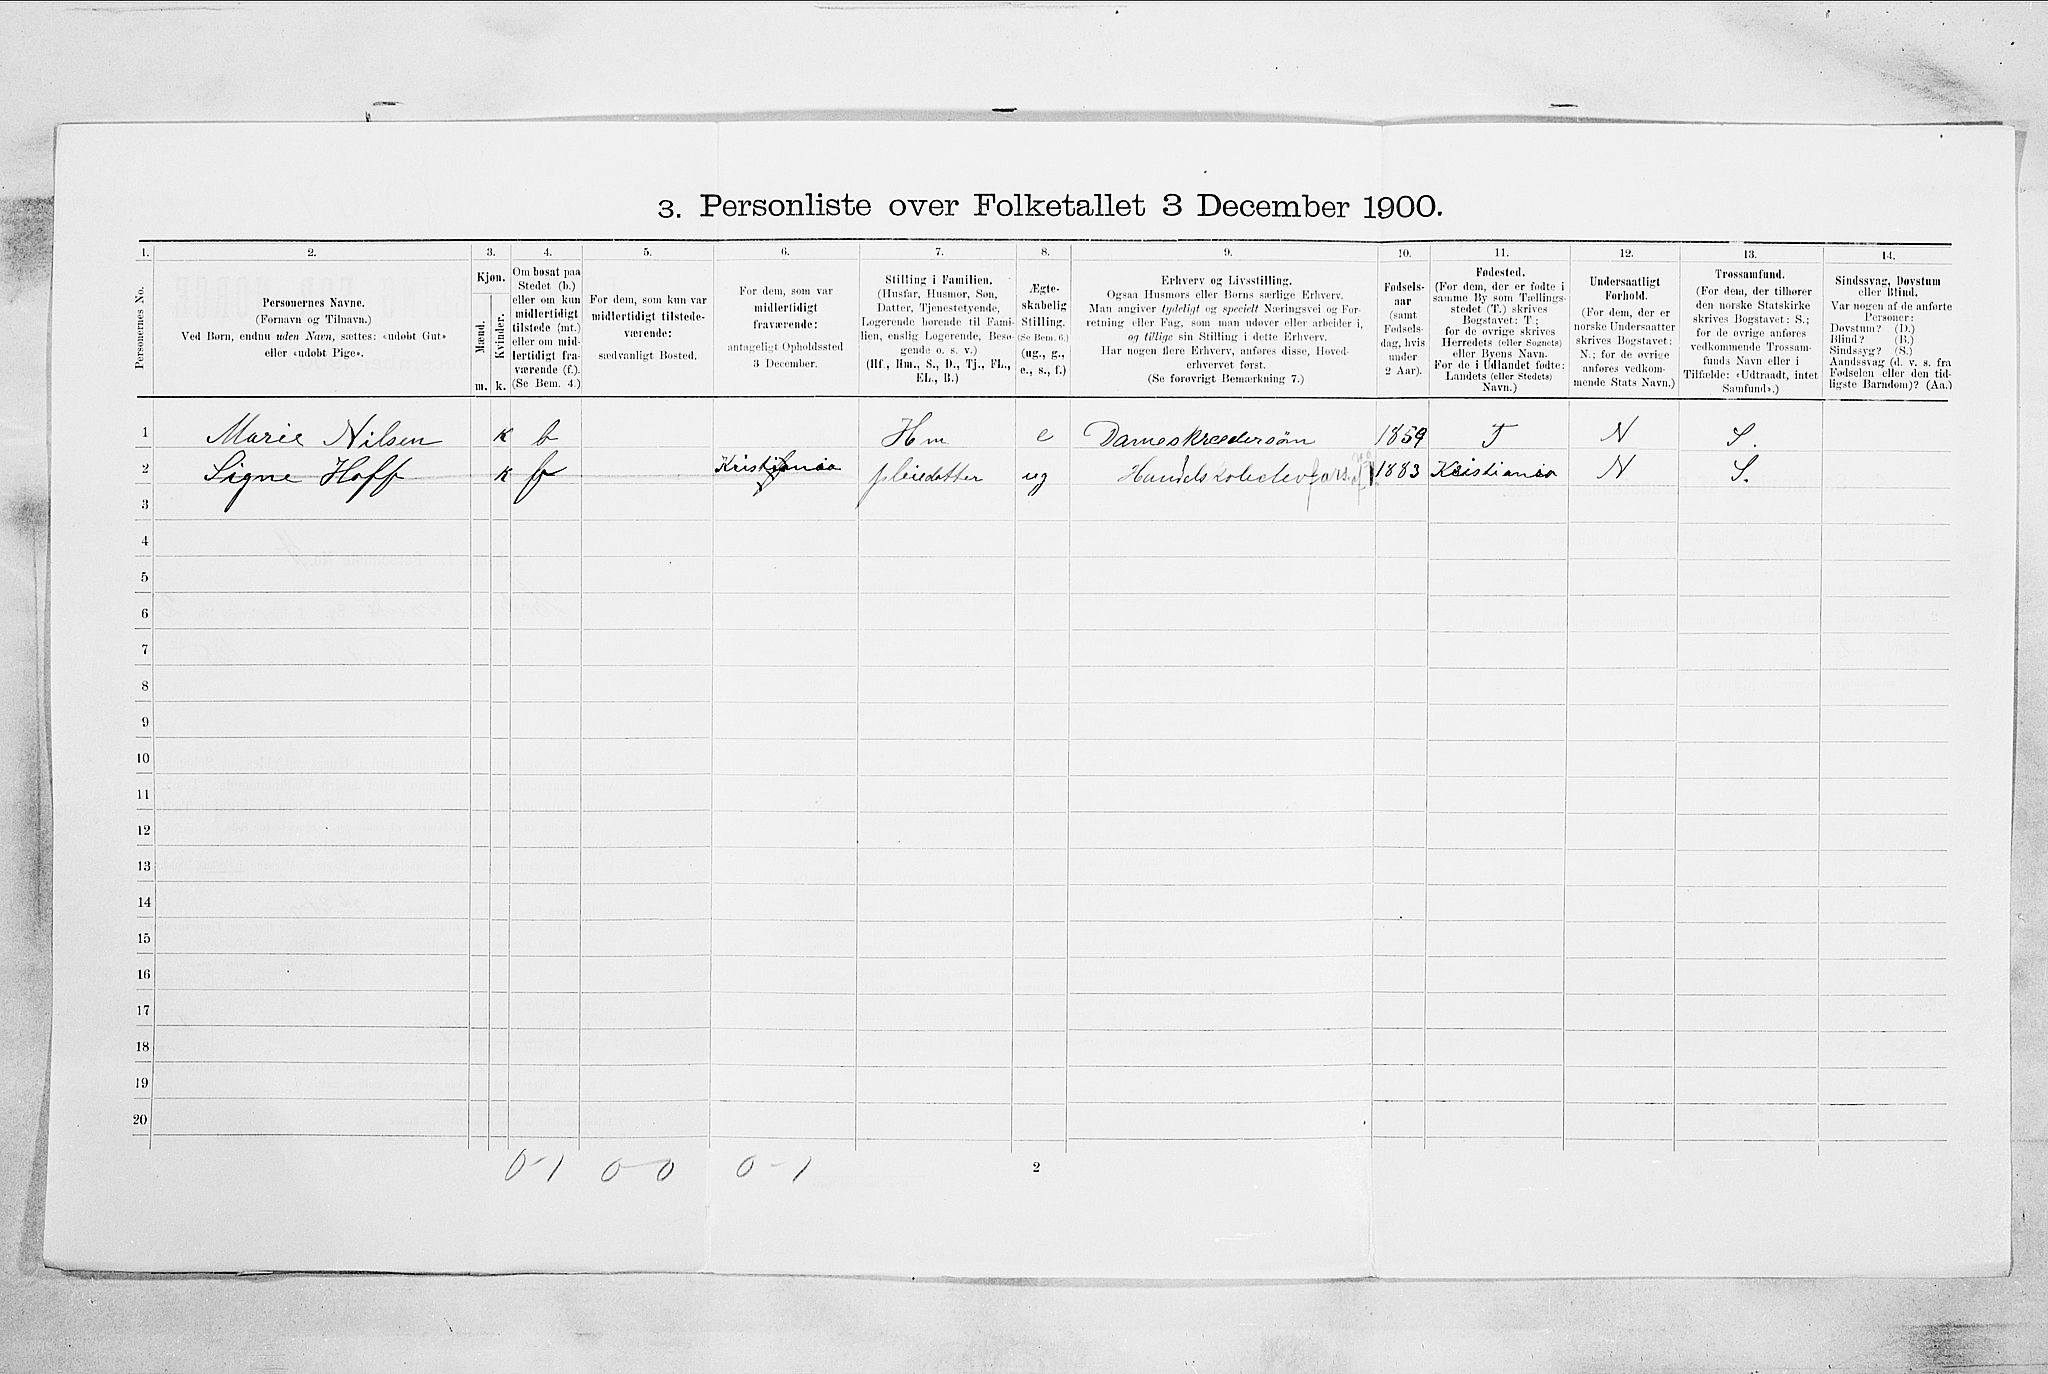 3. Personliste over Folketallet 3 December 1900.
1. 2. 3. 4. 5. 6. 7. 8. 9. 10. 11. 12. 13. 14.
Personernes No.
Personernes Navne.
(Fornavn og Tilnavn.)
Ved Børn, endnu uden Navn, sættes: «udøbt Gut»
eller «udøbt Pige».
Kjøn.
Mænd.
Kvinder.
m. k.
Om bosat paa
Stedet (b.)
eller om kun
midlertidigt
tilstede (mt.)
eller om mid-
lertidigt fra-
værende (f.).
(Se Bem. 4.)
For dem, som kun var
midlertidigt tilstede-
værende:
sædvanligt Bosted.
For dem, som var
midlertidigt
fraværende:
antageligt Opholdssted
3 December.
Stilling i Familien.
(Husfar, Husmor, Søn,
Datter, Tjenestetyende,
Logerende hørende til Fami-
lien, enslig Logerende, Besø-
gende o. s. v.)
(Hf., Hm., S., D., Tj., FL.,
EL., B.)
Ægte-
skabelig
Stilling.
(Se Bem. 6.)
(ug., g.,
e., s., f.)
Erhverv og Livsstilling.
Ogsaa Husmors eller Børns særlige Erhverv.
Man angiver tydeligt og specielt Næringsvei og For-
retning eller Fag, som man udøver eller arbeider i,
og tillige sin Stilling i dette Erhverv.
Har nogen flere Erhverv, anføres disse, Hoved-
erhvervet først.
(Se forøvrigt Bemærkning 7.)
Fødsels-
aar
(samt
Fødsels-
dag, hvis
under
2 Aar).
Fødested.
(For dem, der er fødte i
samme By som Tællings-
stedet (T.) skrives
Bogstavet: T;
for de øvrige skrives
Herredets (eller Sognets)
eller Byens Navn.
For de i Udlandet fødte:
Landets (eller Stedets)
Navn.)
Undersaatligt
Forhold.
(For dem, der er
norske Undersaatter
skrives Bogstavet:
N.; for de øvrige
anføres vedkom-
mende Stats Navn.)
Trossamfund.
(For dem, der tilhører
den norske Statskirke
skrives Bogstavet: S.;
for de øvrige anføres
vedkommende Trossam-
funds Navn eller i
Tilfælde: «Udtraadt, intet
Samfund».)
Sindssvag, Døvstum
eller Blind.
Var nogen af de anførte
Personer:
Døvstum? (D.)
Blind? (B.)
Sindssyg? (S.)
Aandssvag (d. v. s. fra
Fødselen eller den tid-
ligste Barndom)? (Aa.)
1 Marie Nilsen k b Hm e Dameskrædersøm 1859 T N S.
2 Signe Hoff k f Kristiania pleiedatter ug 1883 Kristiania N S.
3
4
5
6
7
8
9
10
11
12
13
14
15
16
17
18
19
20
0-1 0-0 0-1 2